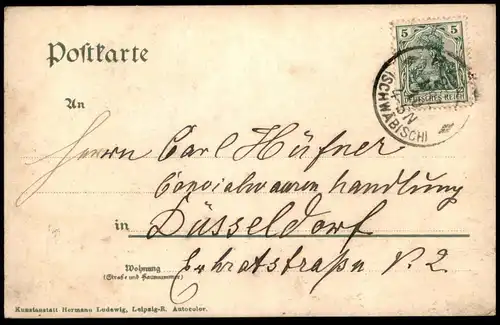 Postkarte
5 5
DEUTSCHES REICH
(SCHWÄBISCH)
An
Herrn Carl Hüfner
Colonialwaaren handlung
in Düsseldorf
Wohnung
(Straße und Hausnummer)
Ehratstraße N. 2
Kunstanstalt Hermann Ludewig, Leipzig-R. Autocolor.